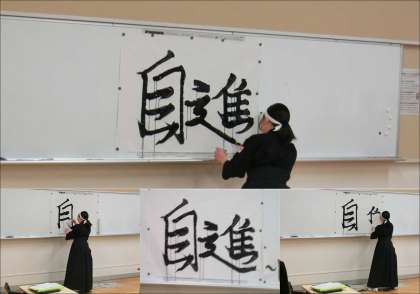 自進
自
自進
自